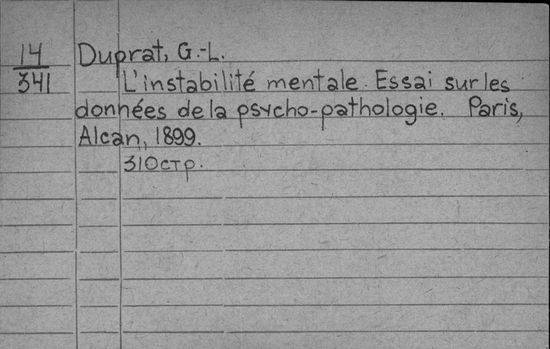 14 Duprat, G.-L.
341 L'instabilité mentale. Essai sur les
données de la psycho-pathologie. Paris,
Alcan, 1899.
310стр.